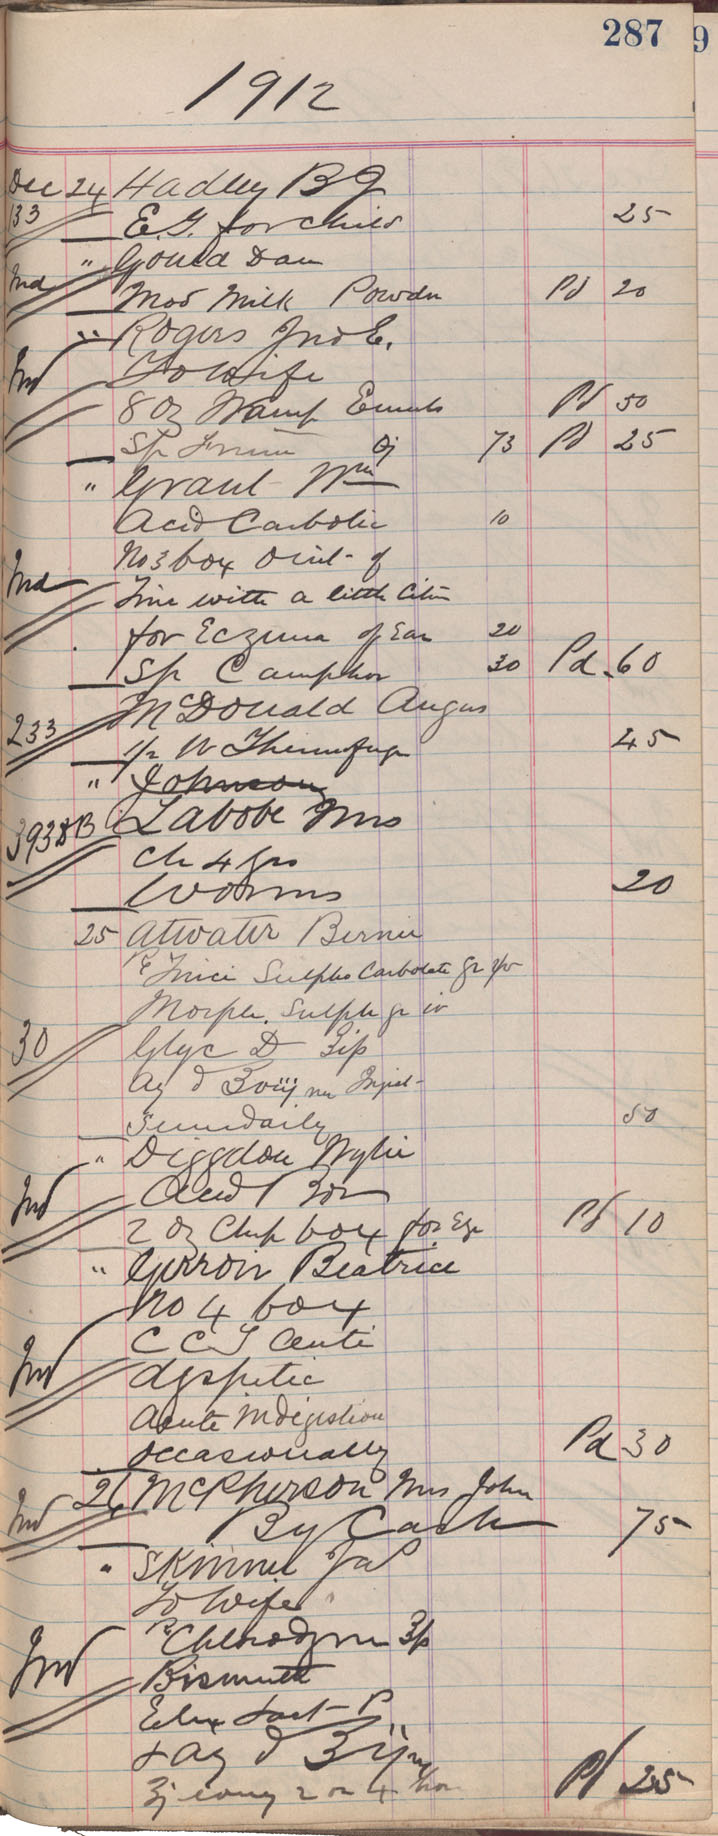 287
1912
Dec 24 Hadley B J
133 E.G. for child 25
" Gould Dan
Ind Mod Milk Powder Pd 20
" Rogers Jno E.
Ind To Wife
8 oz Wamp Emuls Pd 50
Sp 73 Pd 25
" Grant Wm
Acid Carbolic 10
No 3 box Oint - of
Ind Zinc with a little Citrin
for Eczema of Ear 20
Sp Camphor 30 Pd 60
McDonald Angus
233 1/2 W Thermofuge 45
" Johnson
393 DB Labobe Mrs
Ch 4 grs
Worms 20
25 Atwater Bernie
Rx Zinci Sulpho Carbolate gr
Morph. Sulph gr iv
30 Glyc D
Aq d Inject -
daily 50
" Diggdon Wylie
Ind Acid Bor
2 oz Chip box for Eye Pd 10
" Gerroir Beatrice
No 4 box
C C T Anti
Ind dyspetic
Acute Indigestion
occasionally Pd 30
26 McPherson Mrs John
Ind By Cash 75
" Skinner Jas
To Wife
Rx Chlorodyne
Ind Bismuth
Elix Lact - P
Aq d
every 2 or 4 hor Pd 25